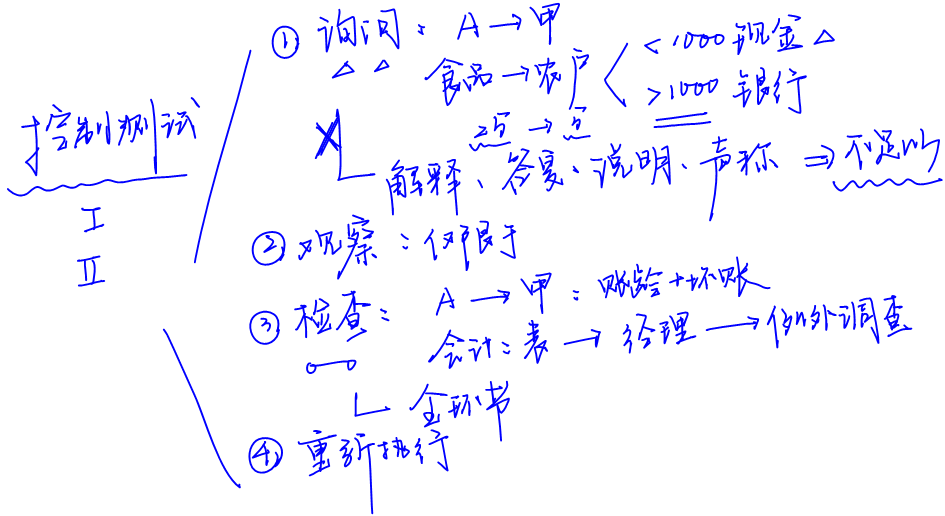 控制测试
I
II
① 询问：A→甲
食品→农户 <1000 现金
>1000 银行
→
解释、答复、说明、声称 ⇒ 不足以
② 观察：仅限于
③ 检查：A→甲：账龄+坏账
会计：表→经理→例外调查
全环节
④ 重新执行